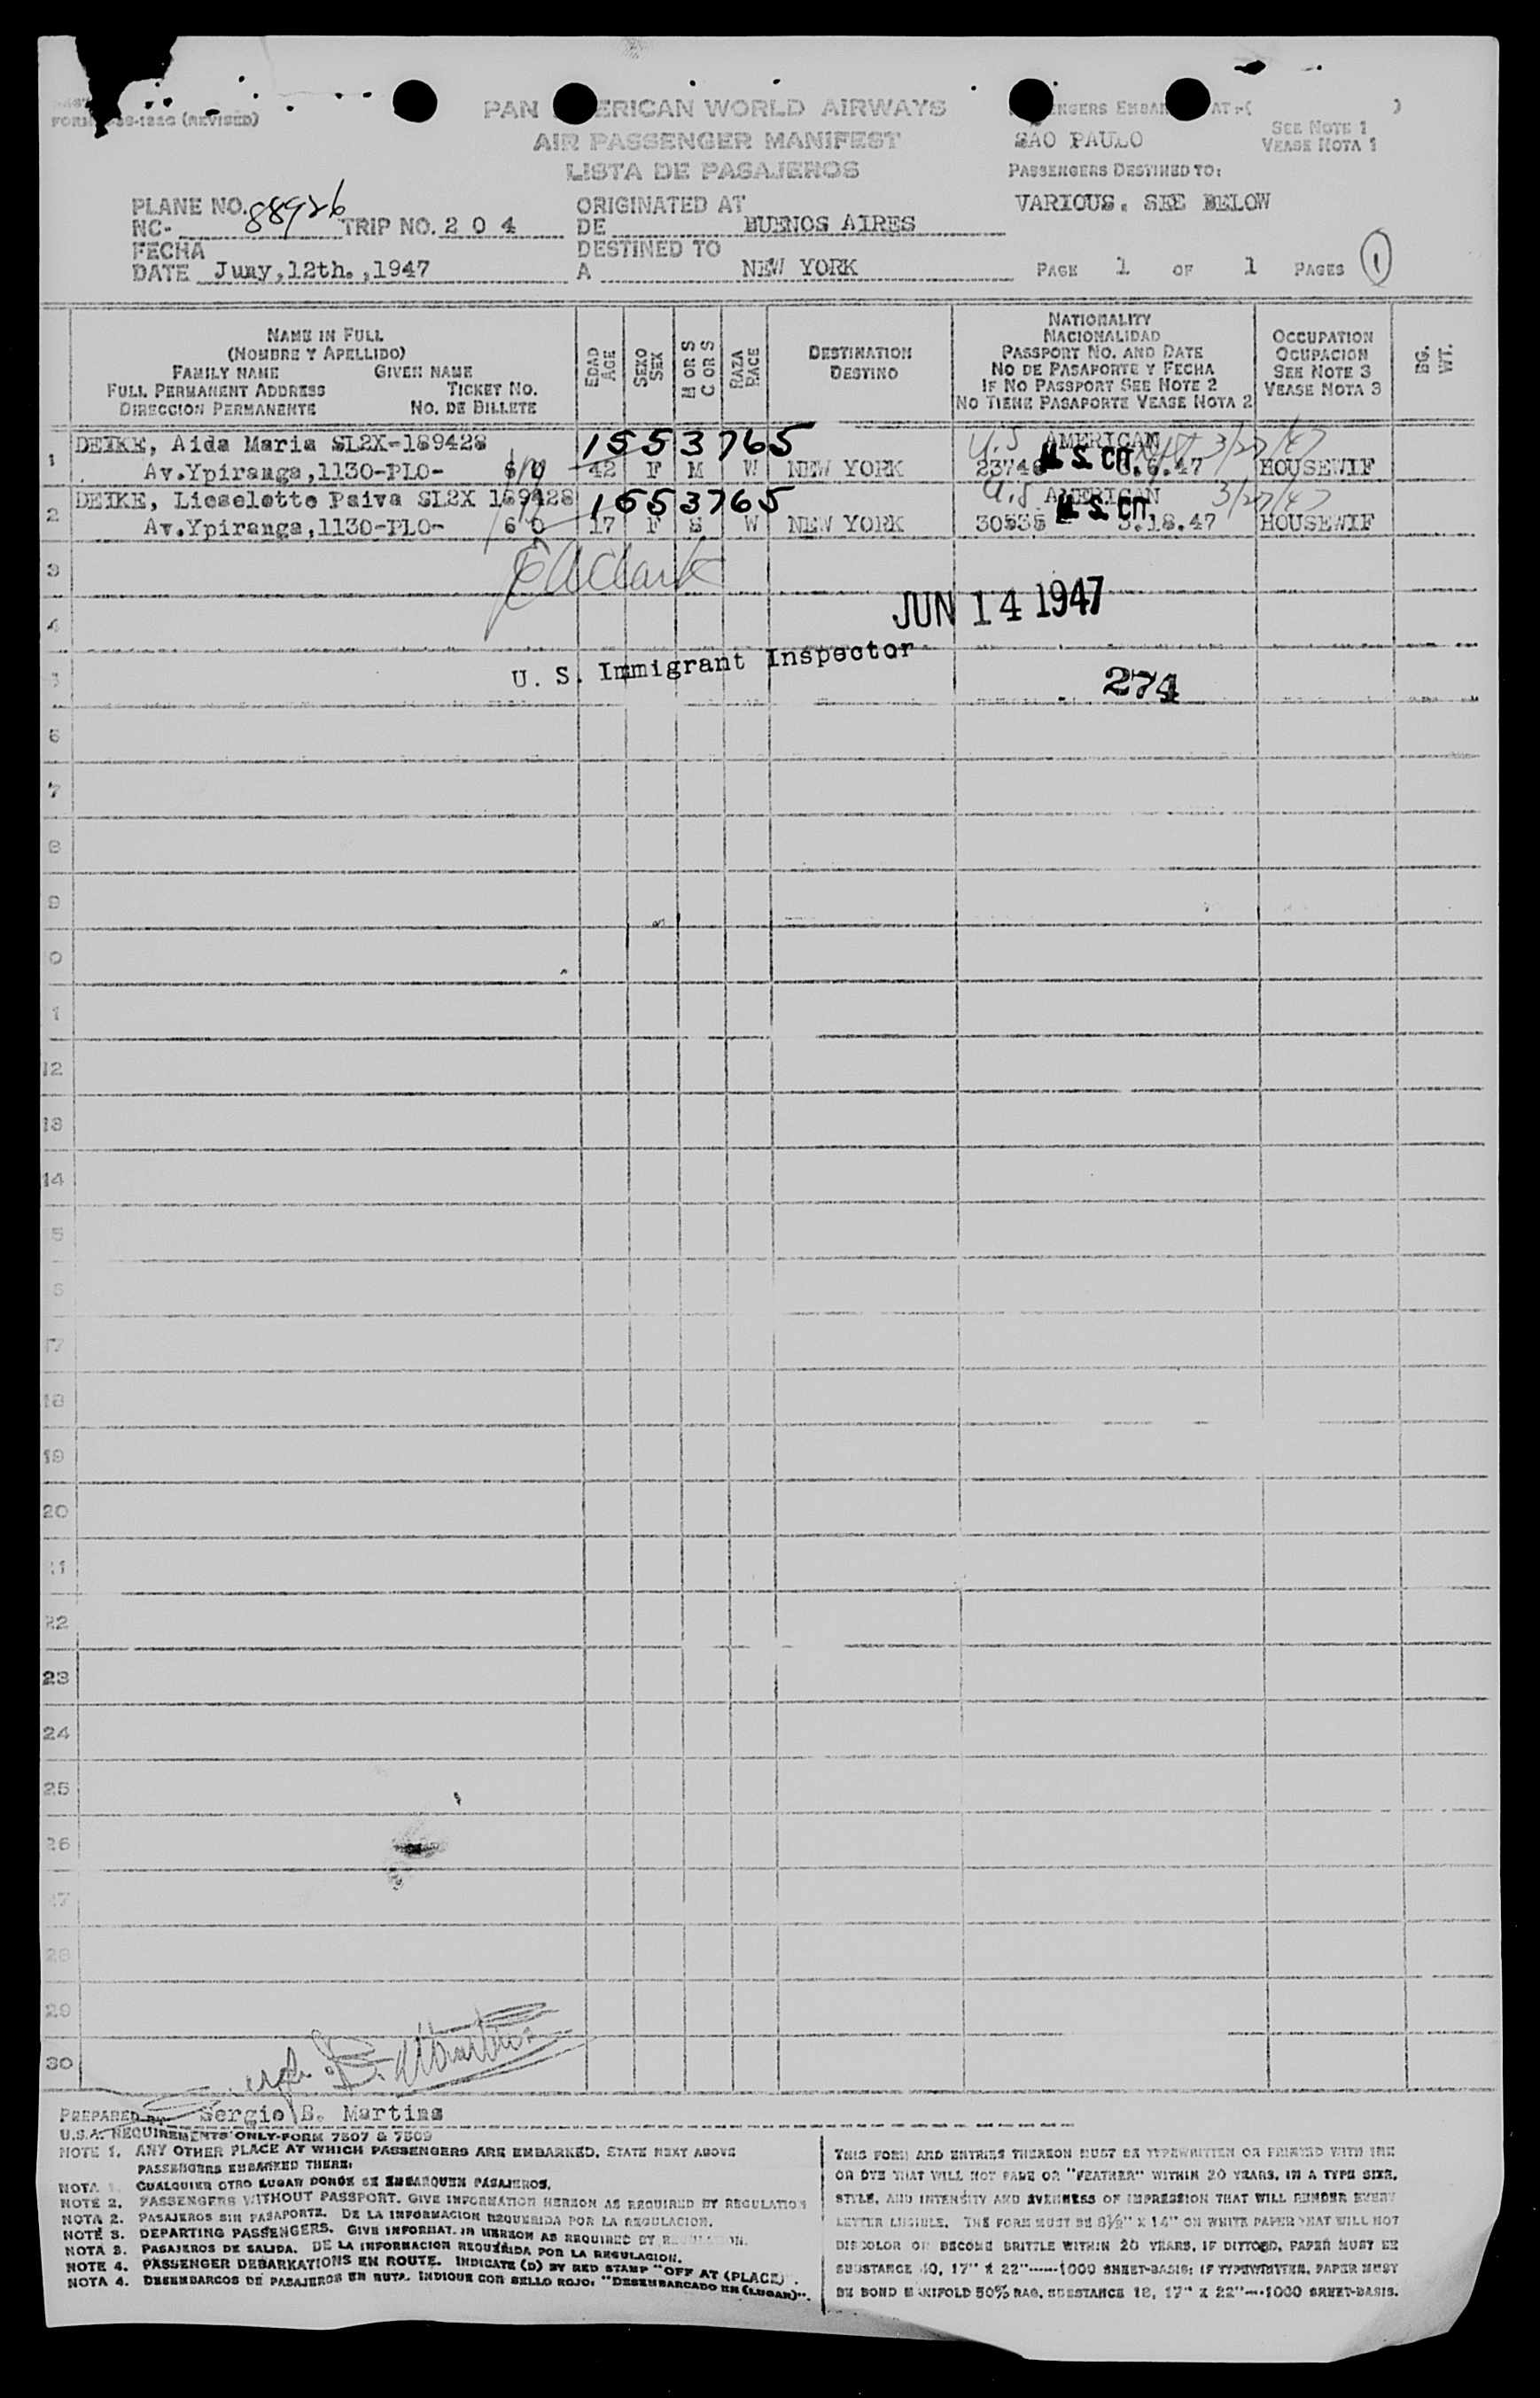 FORM -38-182G (REVISED)
PAN ERICAN WORLD AIRWAYS
AIR PASSENGER MANIFEST
LISTA DE PASAJEROS
ENGERS EMBAR AT:-( )
SAO PAULO
SEE NOTE 1
VEASE NOTA 1
PASSENGERS DESTINED TO:
VARIOUS. SEE BELOW
PLANE NO.
NC- 88926 TRIP NO. 2 0 4
FECHA
DATE Juny,12th.,1947
ORIGINATED AT
DE BUENOS AIRES
DESTINED TO
A NEW YORK
PAGE 1 OF 1 PAGES 1
NAME IN FULL
(NOMBRE Y APELLIDO)
FAMILY NAME GIVEN NAME
FULL PERMANENT ADDRESS TICKET NO.
DIRECCION PERMANENTE NO. DE BILLETE
EDAD
AGE
SEXO
SEX
M OR S
C OR S
RAZA
RACE
DESTINATION
DESTINO
NATIONALITY
NACIONALIDAD
PASSPORT NO. AND DATE
NO DE PASAPORTE Y FECHA
IF NO PASSPORT SEE NOTE 2
NO TIENE PASAPORTE VEASE NOTA 2
OCCUPATION
OCUPACION
SEE NOTE 3
VEASE NOTA 3
BG.
WT.
1 DEIKE, Aida Maria SL2X-189428 1553765 U.S AMERICAN 3/27/47
Av.Ypiranga,1130-PLO- 6 0 42 F M W NEW YORK 23746 U.S. CIT. 47 HOUSEWIF
2 DEIKE, Lieselotte Paiva SL2X 189428 1553765 U.S AMERICAN 3/27/47
Av.Ypiranga,1130-PLO- 6 0 17 F S W NEW YORK 30535 U.S. CIT. 3.18.47 HOUSEWIF
3
E A Clark
JUN 14 1947
4
U. S. Immigrant Inspector
5
274
6
7
8
9
0
1
12
13
14
5
6
17
18
19
20
1
22
23
24
25
26
27
28
29
30
PREPARED BY Sergio B. Martins
U.S.A. REQUIREMENTS ONLY-FORM 7507 & 7509
NOTE 1. ANY OTHER PLACE AT WHICH PASSENGERS ARE EMBARKED, STATE NEXT ABOVE
PASSENGERS EMBARKED THERE:
NOTA 1. CUALQUIER OTRO LUGAR DONDE SE EMBARQUEN PASAJEROS.
NOTE 2. PASSENGERS WITHOUT PASSPORT. GIVE INFORMATION HEREON AS REQUIRED BY REGULATION
NOTA 2. PASAJEROS SIN PASAPORTE. DE LA INFORMACION REQUERIDA POR LA REGULACION.
NOTE 3. DEPARTING PASSENGERS. GIVE INFORMAT. IN HEREON AS REQUIRED BY REGULATION.
NOTA 3. PASAJEROS DE SALIDA. DE LA INFORMACION REQUERIDA POR LA REGULACION.
NOTE 4. PASSENGER DEBARKATIONS EN ROUTE. INDICATE (D) BY RED STAMP "OFF AT (PLACE)".
NOTA 4. DESEMBARCOS DE PASAJEROS EN RUTA. INDIQUE CON SELLO ROJO: "DESEMBARCADO EN (LUGAR)".
THIS FORM AND ENTRIES THEREON MUST BE TYPEWRITTEN OR PRINTED WITH INK
OR DYE THAT WILL NOT FADE OR "FEATHER" WITHIN 20 YEARS, IN A TYPE SIZE,
STYLE, AND INTENSITY AND EVENNESS OF IMPRESSION THAT WILL RENDER EVERY
LETTER LEGIBLE. THE FORM MUST BE 8½" X 14" ON WHITE PAPER THAT WILL NOT
DISCOLOR OR BECOME BRITTLE WITHIN 20 YEARS, IF DITTOED, PAPER MUST BE
SUBSTANCE 40, 17" X 22"------1000 SHEET-BASIS; IF TYPEWRITTEN, PAPER MUST
BE BOND MANIFOLD 50% RAG, SUBSTANCE 18, 17" X 22"---1000 SHEET-BASIS.